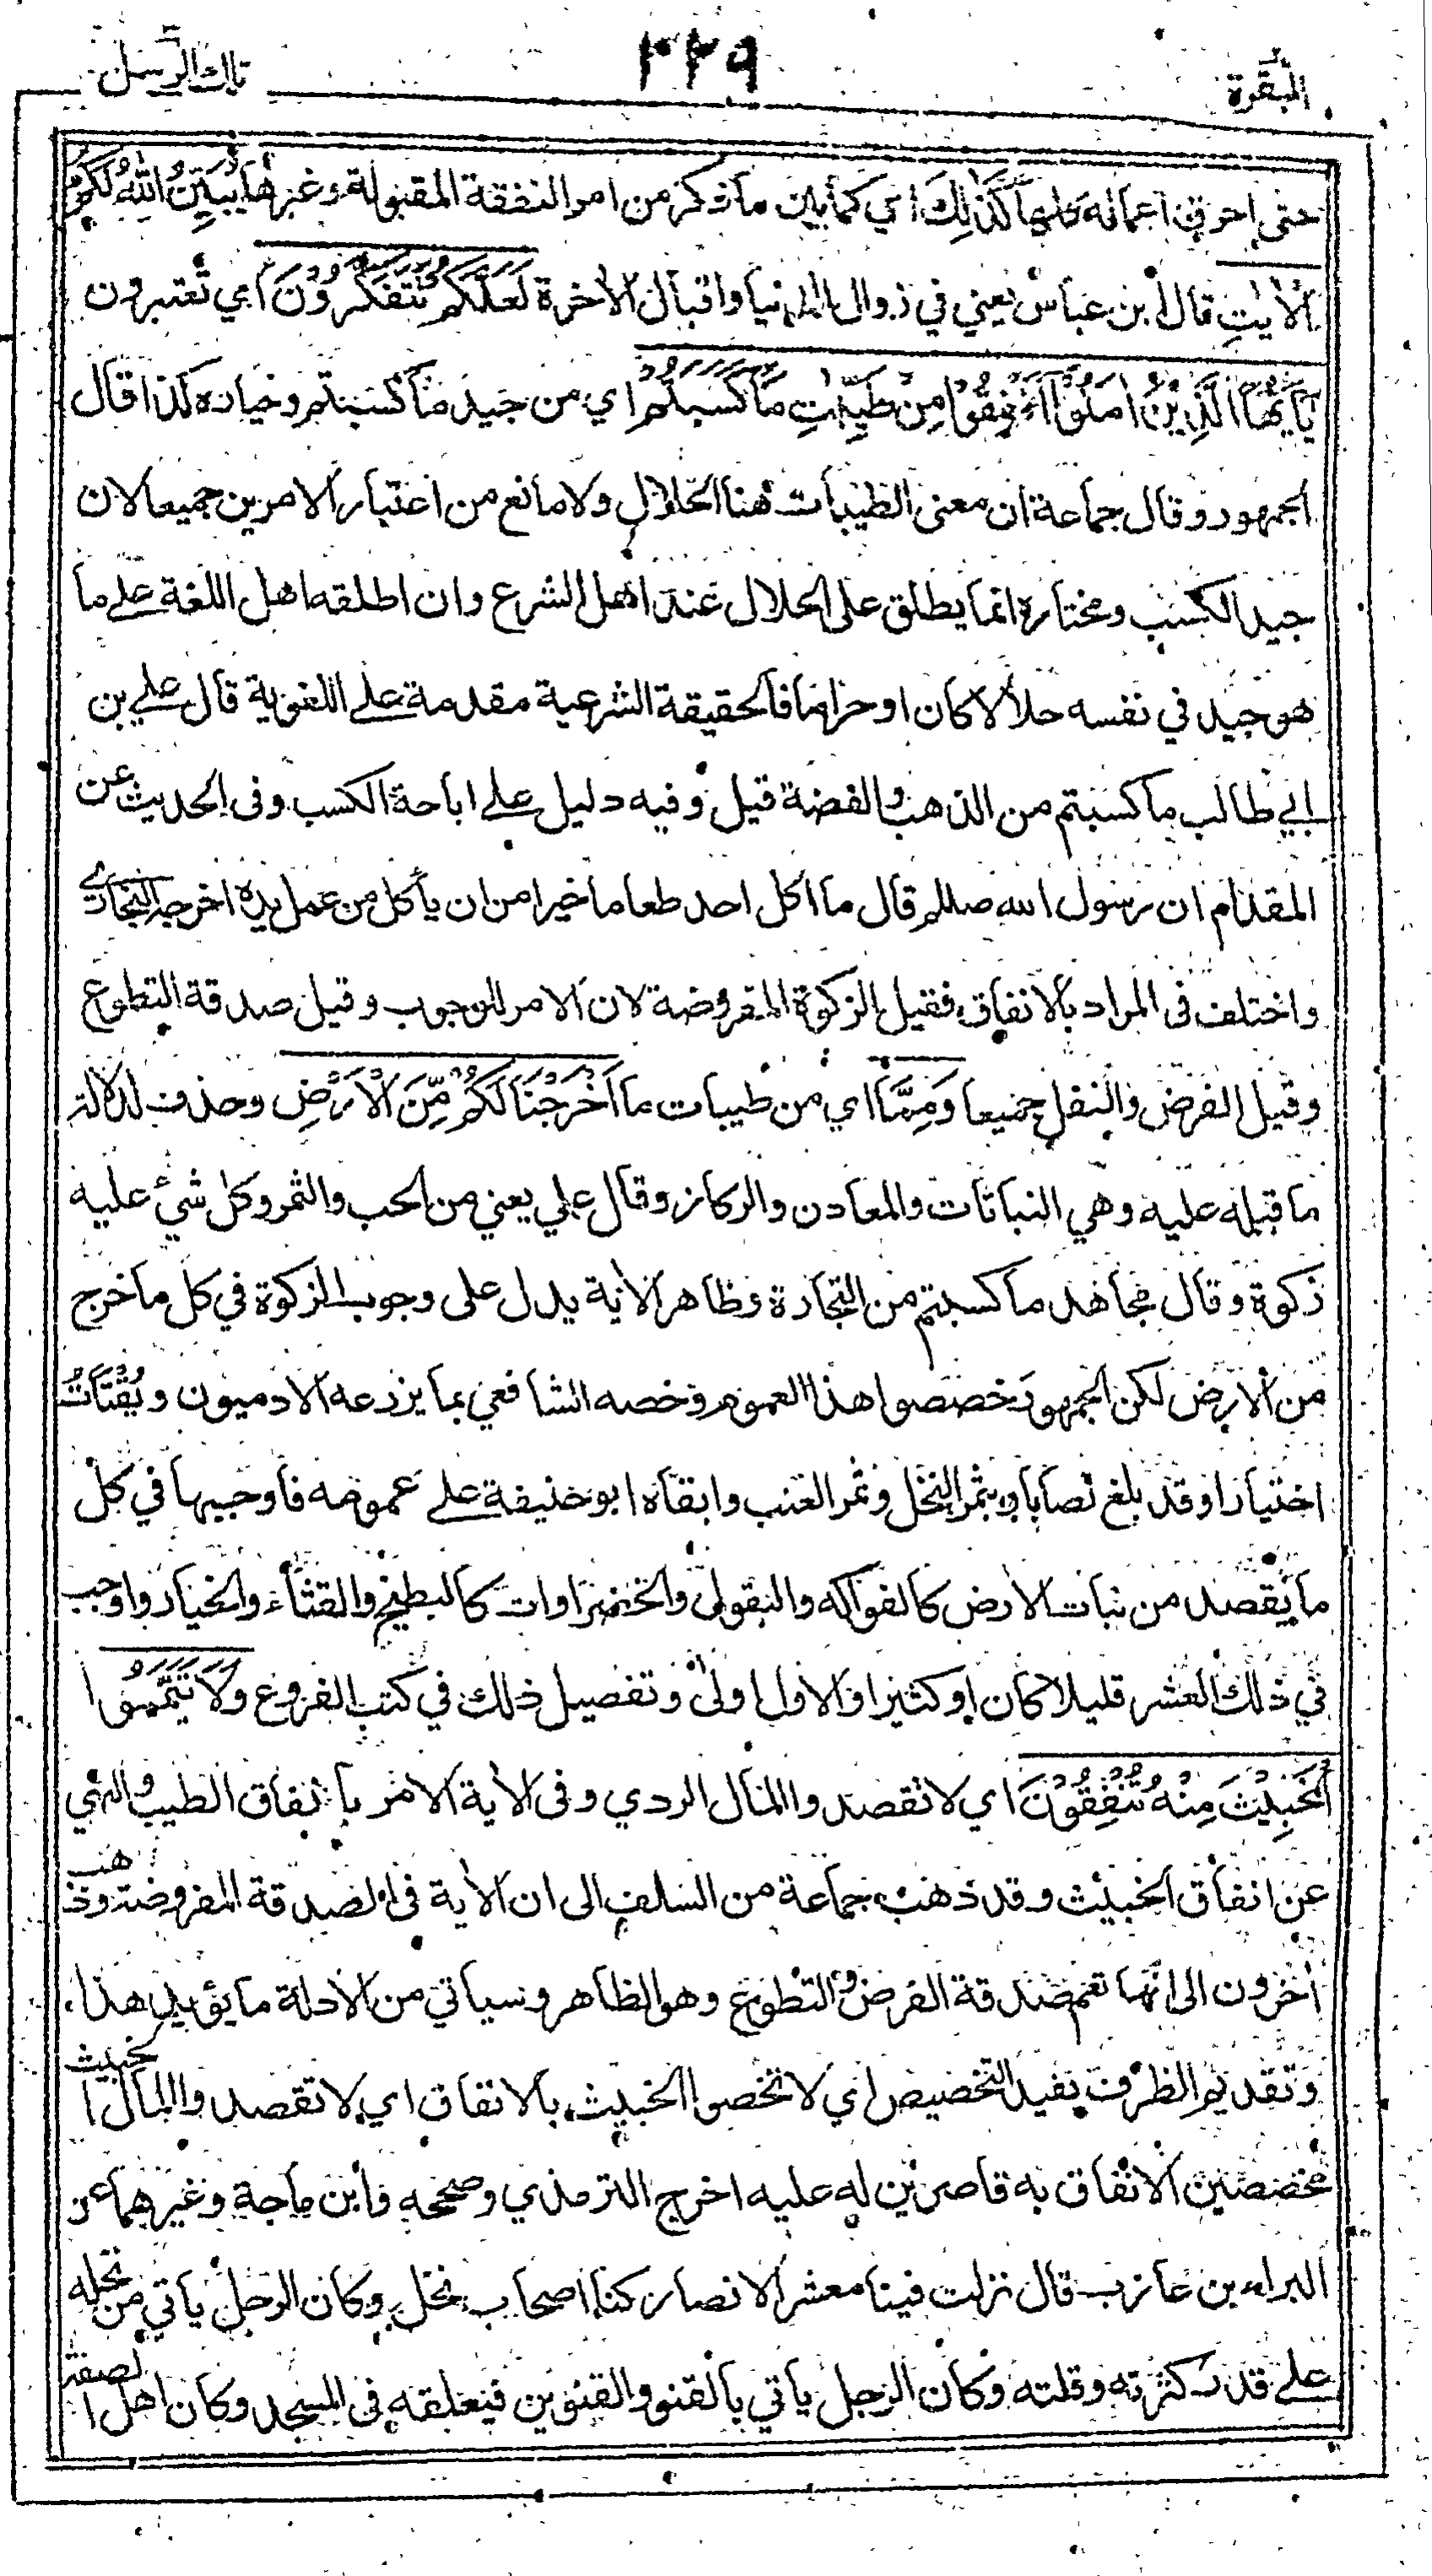 البقرة ٣٣٩ تلك الرسل
حتى احرق اعماله كلها كَذٰلِكَ اي كما بين ما ذكر من امر النفقة المقبولة وغيرها يُبَيِّنُ اللّٰهُ لَكُمُ
الْاٰيٰتِ قال ابن عباس يعني في زوال الدنيا واقبال الاٰخرة لَعَلَّكُمْ تَتَفَكَّرُوْنَ اي تعتبرون
يٰٓاَيُّهَا الَّذِيْنَ اٰمَنُوْٓا اَنْفِقُوْا مِنْ طَيِّبٰتِ مَا كَسَبْتُمْ اي من جيد ما كسبتم وخياره كذا قال
الجمهور وقال جماعة ان معنى الطيبات هنا الحلال ولا مانع من اعتبار الامرين جميعا لان
جيد الكسب ومختاره انما يطلق على الحلال عند اهل الشرع وان اطلقه اهل اللغة علے ما
هو جيد في نفسه حلالا كان او حراما فالحقيقة الشرعية مقدمة علے اللغوية قال علے بن
ابي طالب ما كسبتم من الذهب والفضة قيل وفيه دليل علے اباحة الكسب وفى الحديث عن
المقدام ان رسول الله صللم قال ما اكل احد طعاما خيرا من ان يأكل من عمل يده اخرجه البخاري
واختلف فى المراد بالانفاق فقيل الزكوة المفروضة لان الامر للوجوب وقيل صدقة التطوع
وقيل الفرض والنفل جميعا وَمِمَّآ اي من طيبات ما اَخْرَجْنَا لَكُمْ مِّنَ الْاَرْضِ وحذف لدلالة
ما قبله عليه وهي النباتات والمعادن والركاز وقال علي يعني من الحب والثمر وكل شئ عليه
زكوة وقال مجاهد ما كسبتم من التجارة وظاهر الاٰية يدل على وجوب الزكوة في كل ما خرج
من الارض لكن الجمهور خصصوا هذا العموم وخصه الشافعي بما يزرعه الادميون ويُقْتَاتُ
اختيارا وقد بلغ نصابا وبثمر النخل وثمر العنب وابقاه ابو حنيفة علے عمومه فاوجبها في كل
ما يقصد من نبات الارض كالفواكه والبقول والخضراوات كالبطيخ والقثاء والخيار واوجب
في ذلك العشر قليلا كان او كثيرا والاول اولى وتفصيل ذلك في كتب الفروع وَلَا تَيَمَّمُوا
الْخَبِيْثَ مِنْهُ تُنْفِقُوْنَ اي لا تقصدوا المال الردي وفى الاٰية الامر بانفاق الطيب والنهي
عن انفاق الخبيث وقد ذهب جماعة من السلف الى ان الاٰية فى الصدقة المفروضة وذهب
اٰخرون الى انها تعم صدقة الفرض والتطوع وهو الظاهر وسياتي من الادلة ما يؤيد هذا
وتقديم الظرف يفيد التخصيص اي لا تخصوا الخبيث بالانفاق اي لا تقصدوا المال الخبيث
مخصصين الانفاق به قاصرين له عليه اخرج الترمذي وصححه وابن ماجة وغيرهما عن
البراء بن عازب قال نزلت فينا معشر الانصار كنا اصحاب نخل وكان الرجل ياتي من نخله
علے قدر كثرته وقلته وكان الرجل ياتي بالقنو والقنوين فيعلقه فى المسجد وكان اهل الصفة